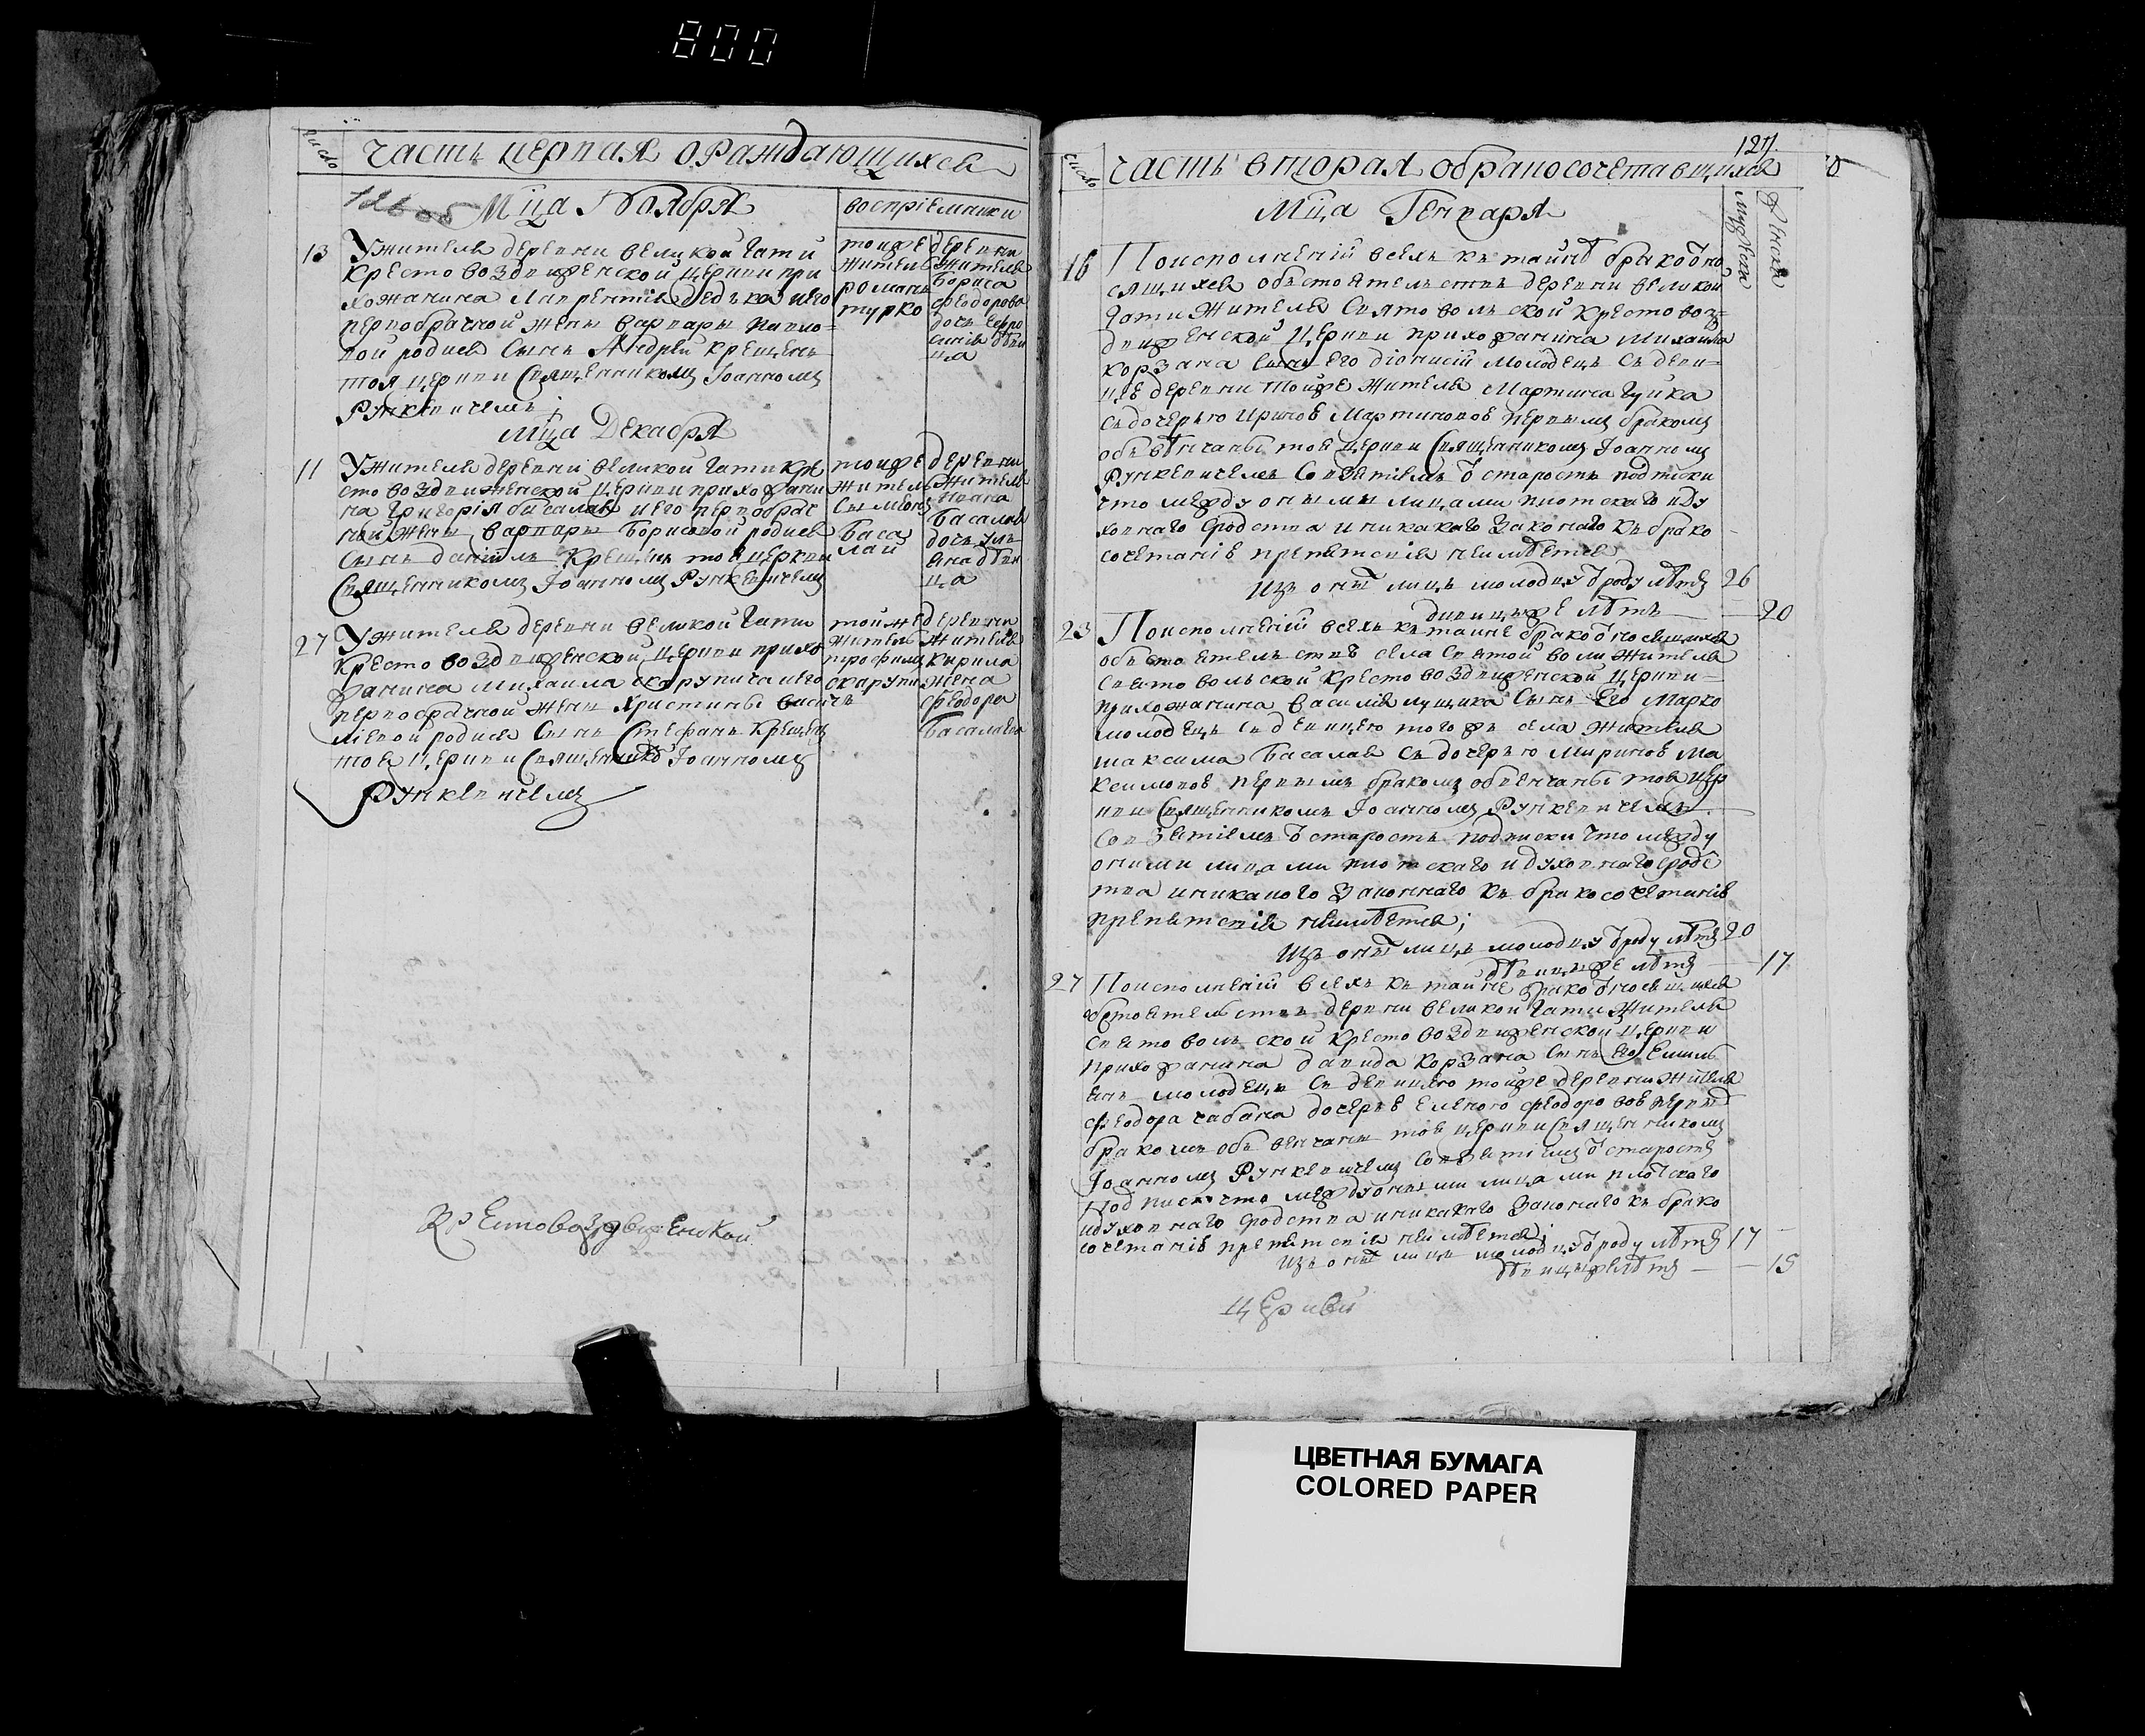 800
число
Часть первая о раждающихся
126 об
Мца Ноября
восприемники
13
У жителя деревни Великой Гати
Кресто воздвиженской церкви при
хожанина Лаврентия Редька и его
первобрачной жены Варвары Павло=
вой родися Сынъ Андрей Крещенъ
тоя церкви Священникомъ Іоанномъ
Рункевичемъ;
тойже
житель
Романъ
Турко
деревни
жителя
Бориса
Феодорова
дочь
дѣви
ца
Мца Декабря
11
У жителя деревни Великой Гати Кре
сто воздвиженской церкви прихожани
на Григорія Басалая и его первобрач
ной жены Варвары Борисовой родися
Сынъ Даніилъ Крещенъ тоя церкви
Священникомъ Іоанномъ Рункевичемъ
тойже
житель
Сымеонъ
Баса
лай
деревни
жителя
Ивана
Басалая
дочь Уль
яна дѣви
ца
27
У жителя деревни Великой Гати
Кресто воздвиженской церкви прихо
жанина Михаила Скарупича и его
первобрачной жены Христины Васи
ліевой родися Сынъ Стефанъ Крещенъ
тоя церкви Священико Іоанномъ
Рункевичемъ
тойже
житель
трофимъ
скарупи
чъ
деревни
жителя
Кирила
жена
Феодора
Басалаева
Крестовоздвиженской
127.
число
Часть вторая о бракосочетавшихся
Мца Генваря
мужеска
женска
16
По исполненій всехъ къ тайнѣ брака отно
сящихся обстоятельствъ деревни Великой
Гати жителя Святовольской Крестовоз=
движенской церкви прихожанина Михаила
Корзана сынъ его Діонисій молодецъ съ деви=
цею деревни тойже жителя Мартина Гуйка
съ дочерью Ириною Мартиновою первымъ бракомъ
объвѣнчаны тоя церкви Священникомъ Іоанномъ
Рункевичемъ Совзятіемъ ѿ старость подписки
что между оными лицами плотскаго и ду
ховнаго сродства и никакаго законаго къ брако
сочетанію препятствія неимѣется
Изъ оныѣ лицъ молодцу ѿроду лѣтъ 26
дивицыже лѣтъ — 20
23
По исполненій всехъ къ тайне брака относящихся
обстоятельствъ села Святой Воли жителя
Святовольской Кресто воздвиженской церкви=
прихожанина Василия Лущика Сынъ Его Марко
молодецъ съ девицею тогожъ села жителя
Максима Басалая съ дочерью Мариною Ма
ксимовою первымъ бракомъ обвенчаны тоя цер
кви Священникомъ Іоанномъ Рункевичемъ
Совзятіемъ ѿ старость подписки что между
оними лицами плотскаго и духовнаго сродс
тва и никаного законнаго къ бракосочетанію
препятствія неимѣется;
Изъ оныѣ лицъ молодцу ѿроду лѣтъ 20
дѣвицыже лѣтъ — 17
27
По исполненій всехъ къ тайне брака относящихся
обстоятельствъ деревни Великой Гати жителя
Святовольской Кресто воздвиженской церкви
прихожанина Давида Корзана Сынъ Его Емиль
янъ молодецъ съ девицею тойже деревни жителя
Феодора Чабана дочерью Еленою Феодоровою первымъ
бракомъ объвенчаны тоя церкви Священникомъ
Іоанномъ Рункевичемъ Совзятіемъ ѿ старость
подписки что между оными лицами плотскаго
и духовнаго сродства и никакаго законаго къ брако
сочетанію препятствія неимѣется;
Изъ оныѣ лицъ молодцу ѿроду лѣтъ 17
дѣвицыже лѣтъ — 15
церкви
ЦВЕТНАЯ БУМАГА
COLORED PAPER